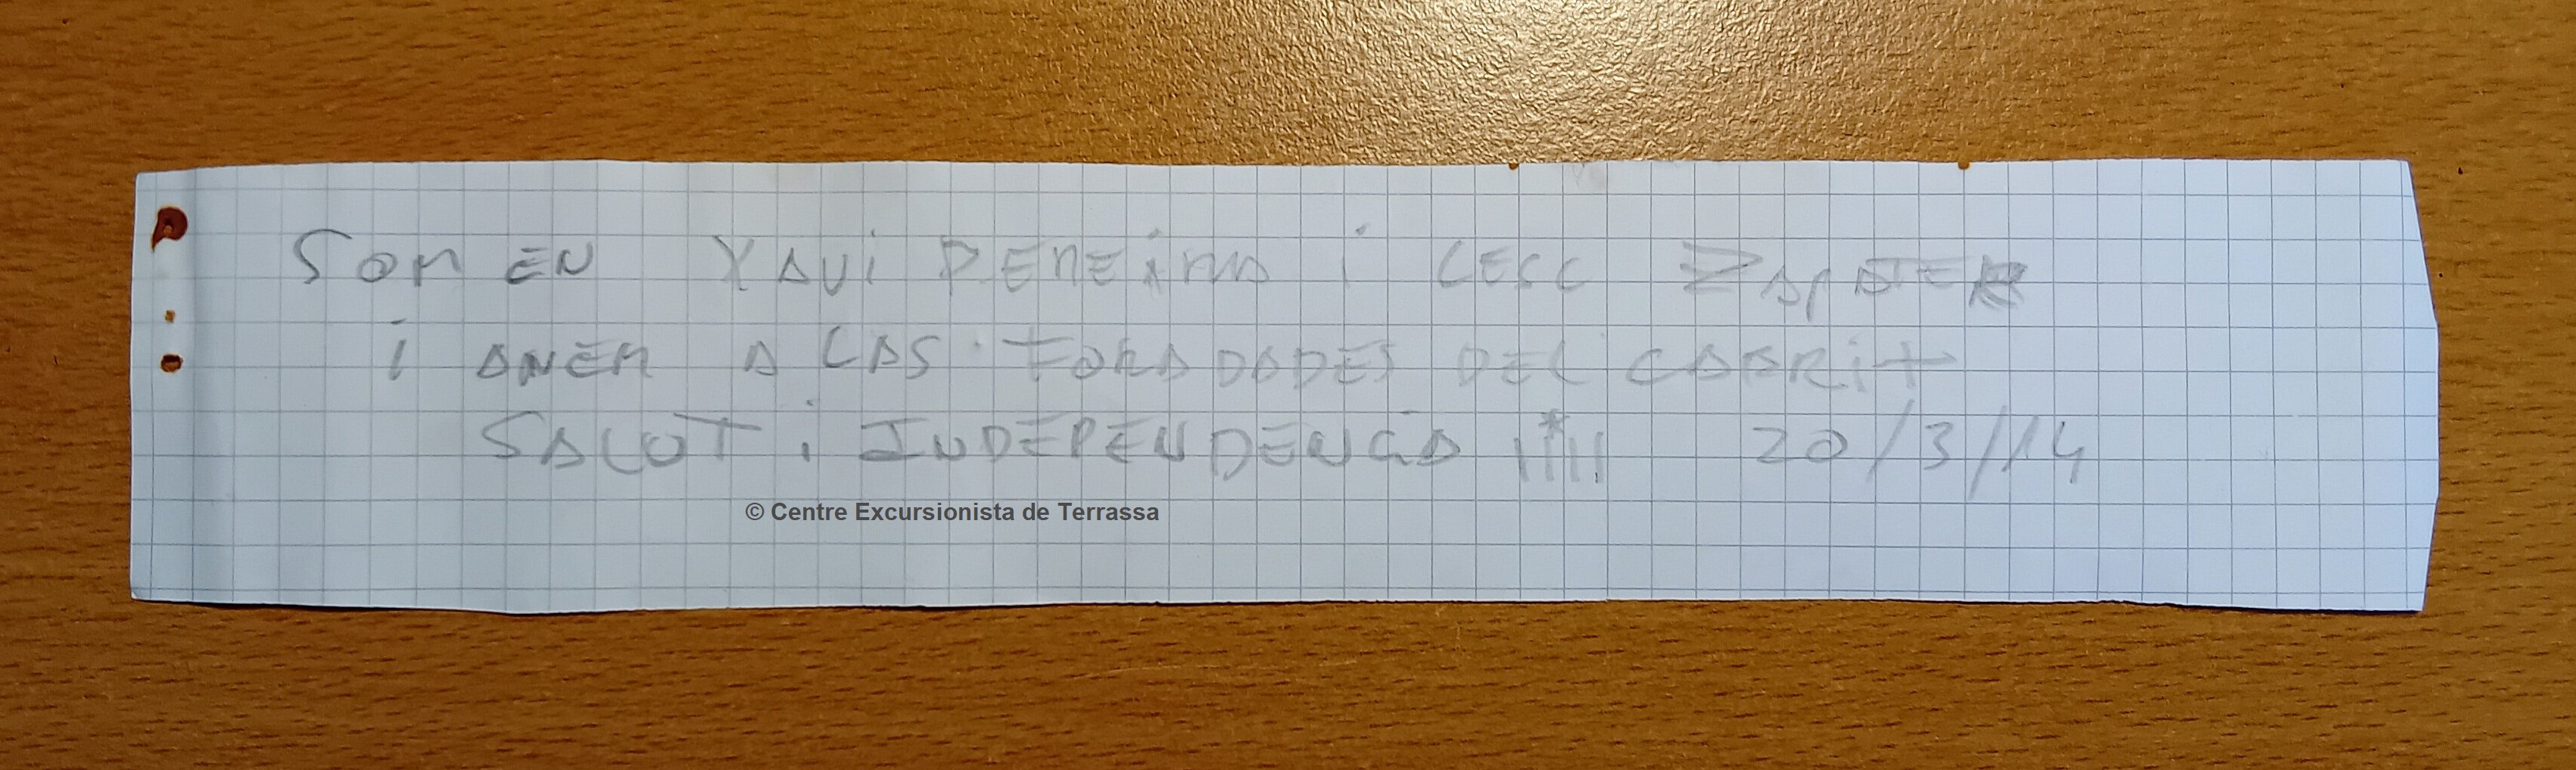 SOM EN XAVI PENEiRA i CESC ZAPATER
i ANEM A LAS FORADADES DEL CABRiT
SALUT i INDEPENDENCiA 20/3/14
© Centre Excursionista de Terrassa